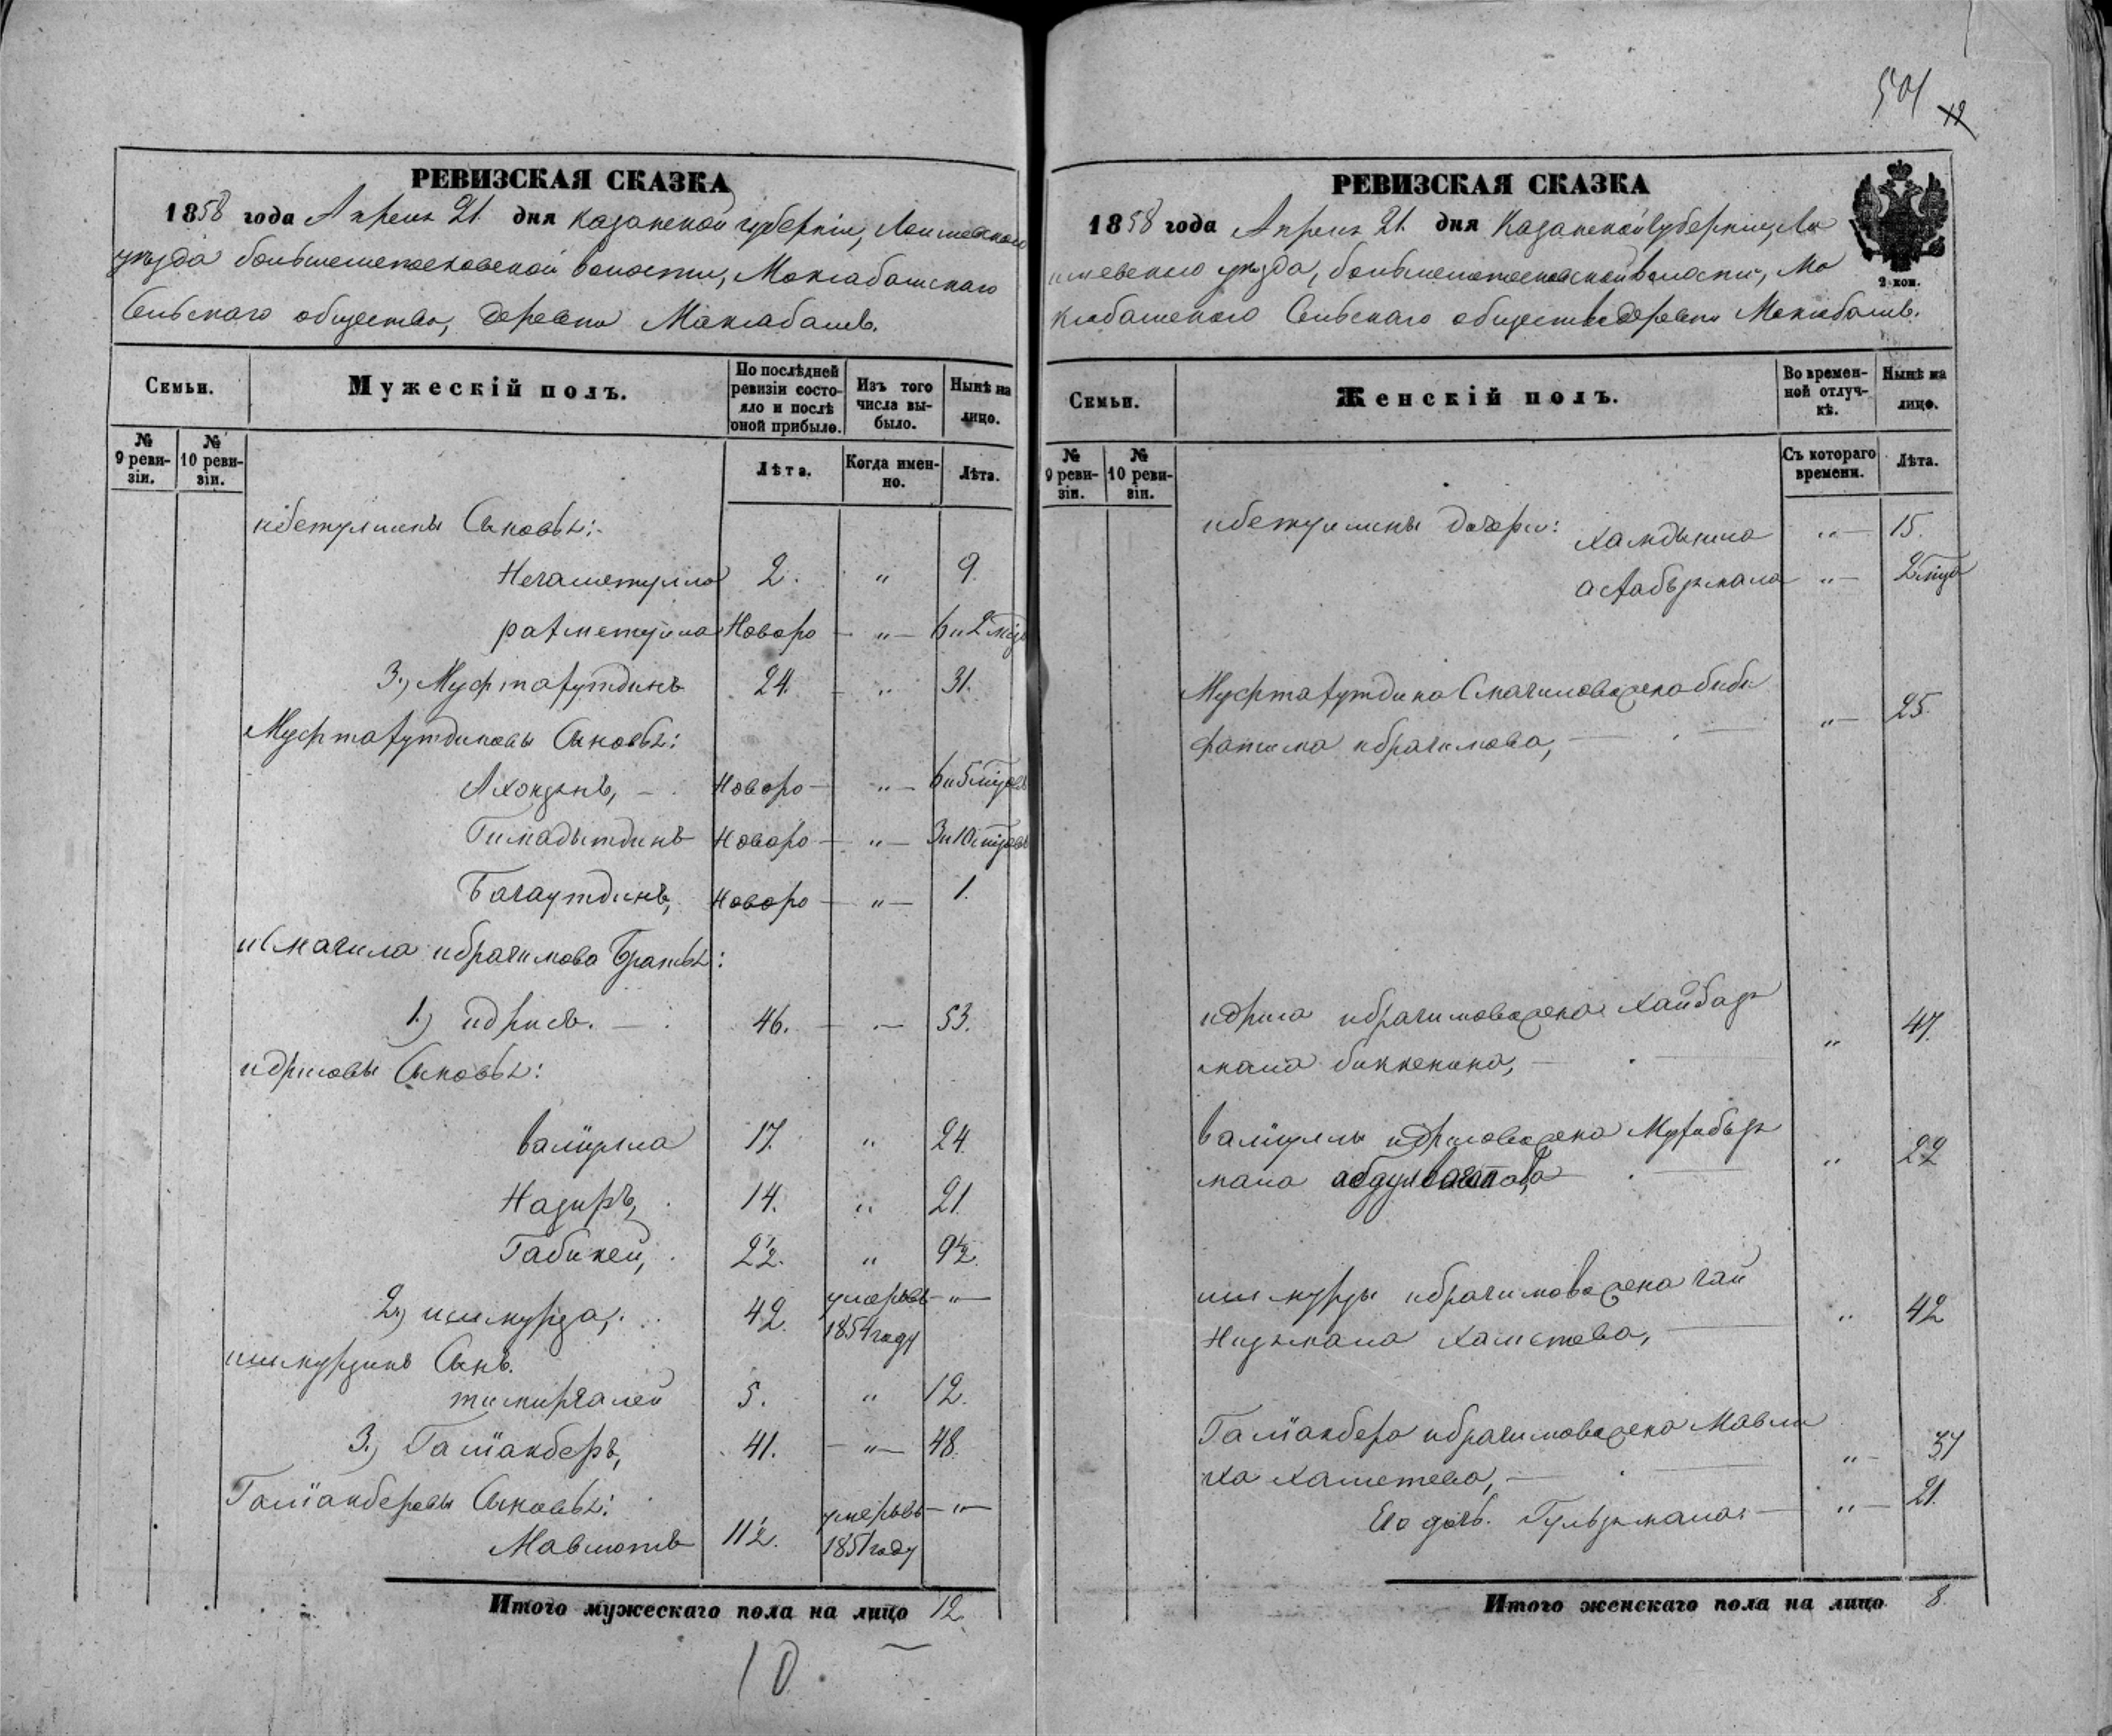 501
12
РЕВИЗСКАЯ СКАЗКА
1858 года Апреля 21 дня Казанской губерніи, Лаишевскаго
уезда большеметесковской волости, Маклабашскаго
Сельскаго общества, деревни Маклабашъ.
Семьи.
Мужескій полъ.
По послѣдней ревизіи состояло и послѣ оной прибыло.
Изъ того числа выбыло.
Нынѣ на лицо.
№ 9 ревизіи.
№ 10 ревизіи.
Лѣта.
Когда именно.
Лѣта.
ибетуллины Сыновья:
Негаметулла 2. " 9.
рахметулла Новоро — " — 6 и 2 мца
3.) Муфтахутдинъ 24. " 31.
Муфтахутдиновы Сыновья:
Ахонзянъ, — Новоро — " — 6 и 5 мцовъ
Гимадытдинъ Новоро — " — 3 и 10 мцовъ
Багаутдинъ, Новоро — " — 1.
исмагила ибрагимова Братья:
1.) идрисъ. — 46. — " — 53.
идрисовы Сыновья:
валіулла 17. " 24.
Назиръ, 14. " 21.
Габикей, 2½. " 9½.
2.) ишмурза, 42. умеръ въ 1854 году — " —
ишмурзинъ Сынъ.
тимиргалей 5. " 12.
3.) Галіакберъ, 41. — " — 48.
Галіакберовы Сыновья:
Мавлютъ 11½. умеръ въ 1851 году — " —
Итого мужескаго пола на лицо 12.
10.
РЕВИЗСКАЯ СКАЗКА
1858 года Апреля 21. дня Казанской Губерніи, Ла
ишевскаго уезда, большеметесковской волости, Ма
клабашскаго Сельскаго общества деревни Маклабашъ.
2 коп.
Семьи.
Женскій полъ.
Во временной отлучкѣ.
Нынѣ на лицо.
№ 9 ревизіи.
№ 10 ревизіи.
Съ котораго времени.
Лѣта.
ибетуллины дочери: Хамдыниса " — 15.
" — 2 мца
Муфтахутдина Смагилова жена биби
фатима ибрагимова, — " — 25.
идриса ибрагимова жена Хайбаз
мала биккенина, — " 47.
валіуллы идрисова жена Мухибыз
мала абдулвагапова — " 22
ишмурзы ибрагимова жена гай
низямала Хаметева, — " 42
Галіакбера ибрагимова жена Мавли
ха Хаметева, — " — 37
Его дочь. Гульзямала: — " — 21.
Итого женскаго пола на лицо 8.